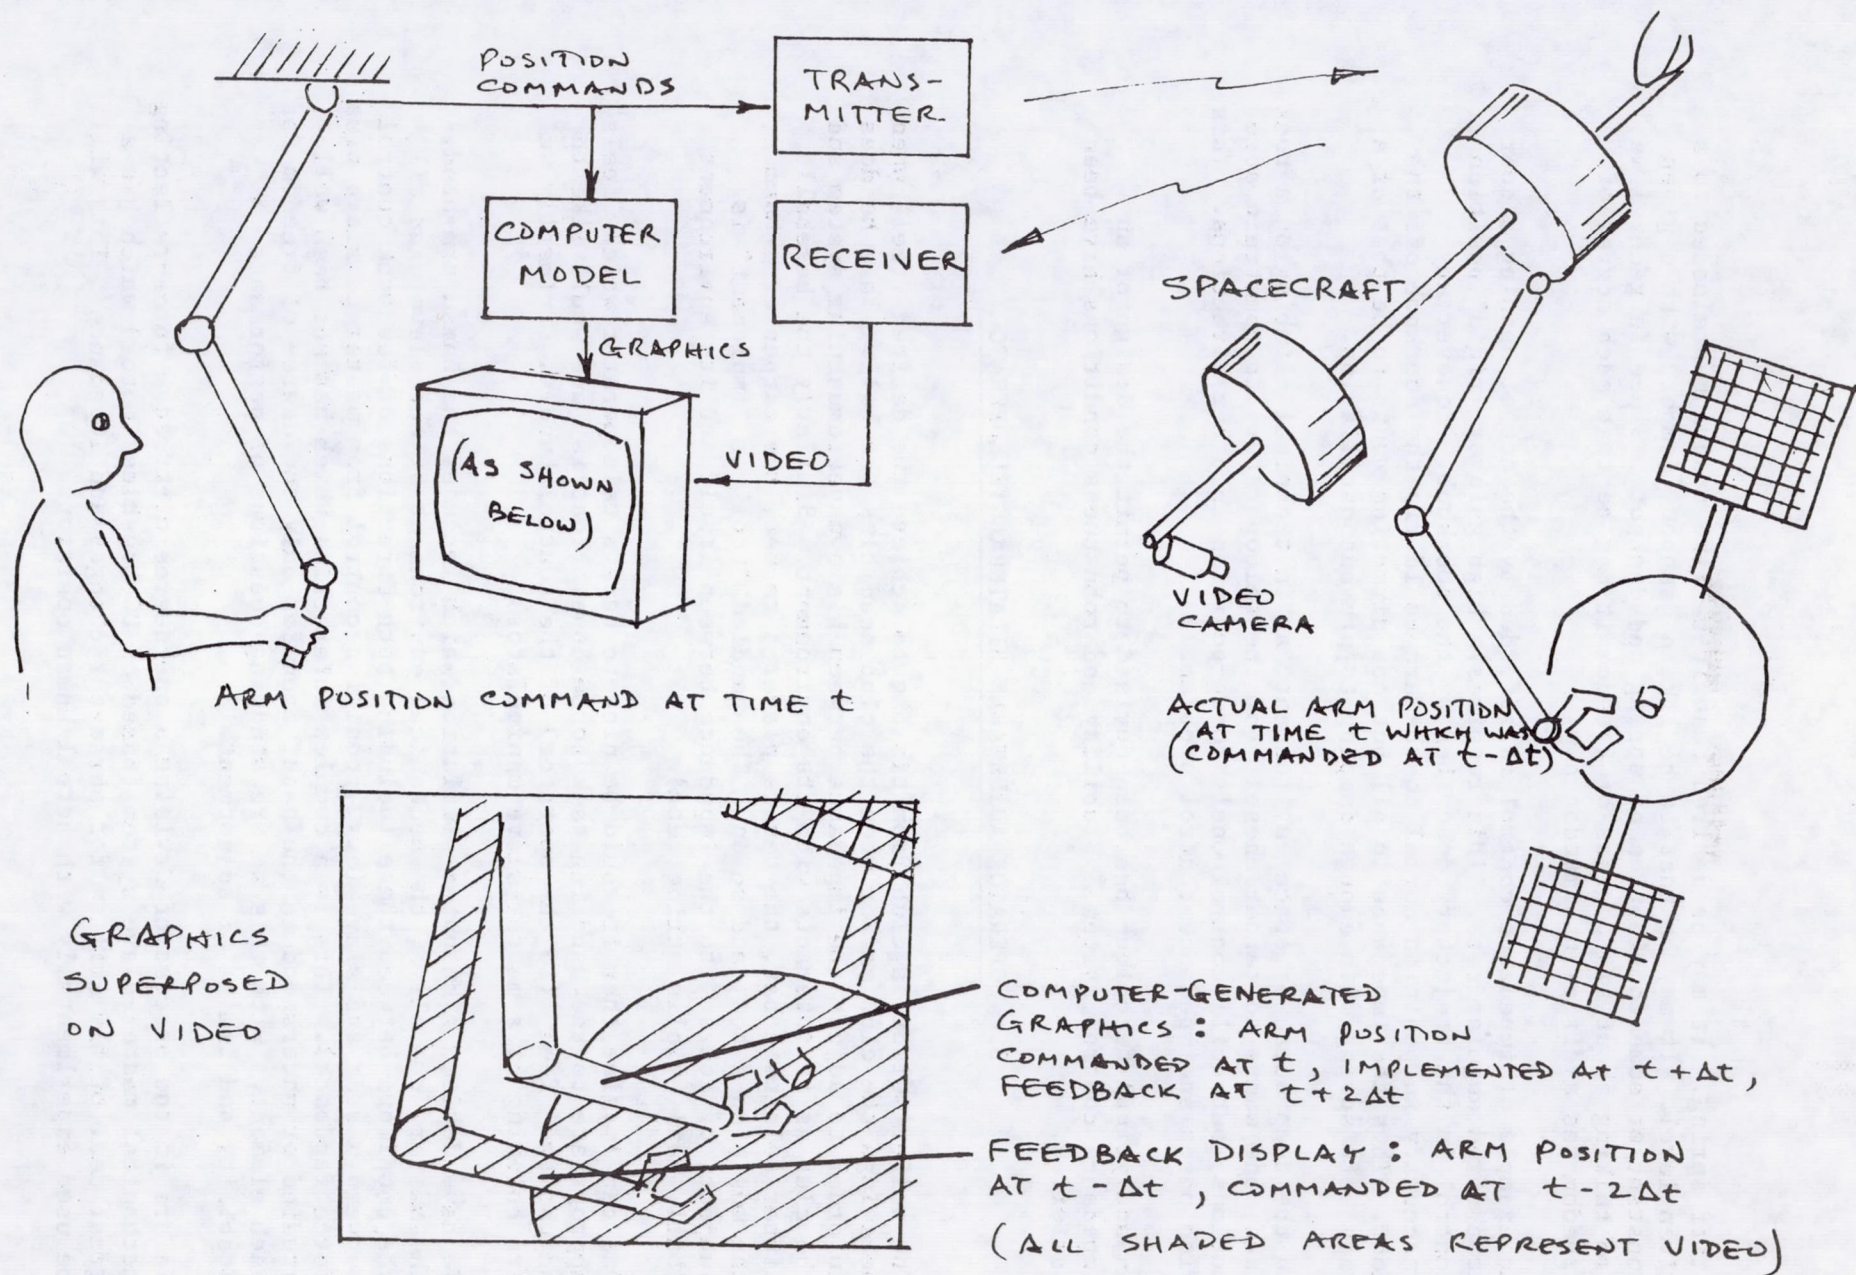 POSITION
COMMANDS
TRANS-
MITTER
COMPUTER
MODEL
RECEIVER
SPACECRAFT
GRAPHICS
(AS SHOWN
BELOW)
VIDEO
VIDEO
CAMERA
ARM POSITION COMMAND AT TIME t
ACTUAL ARM POSITION
(AT TIME t WHICH WAS
COMMANDED AT t-Δt)
GRAPHICS
SUPERPOSED
ON VIDEO
COMPUTER-GENERATED
GRAPHICS: ARM POSITION
COMMANDED AT t, IMPLEMENTED AT t+Δt,
FEEDBACK AT t+2Δt
FEEDBACK DISPLAY: ARM POSITION
AT t-Δt, COMMANDED AT t-2Δt
(ALL SHADED AREAS REPRESENT VIDEO)